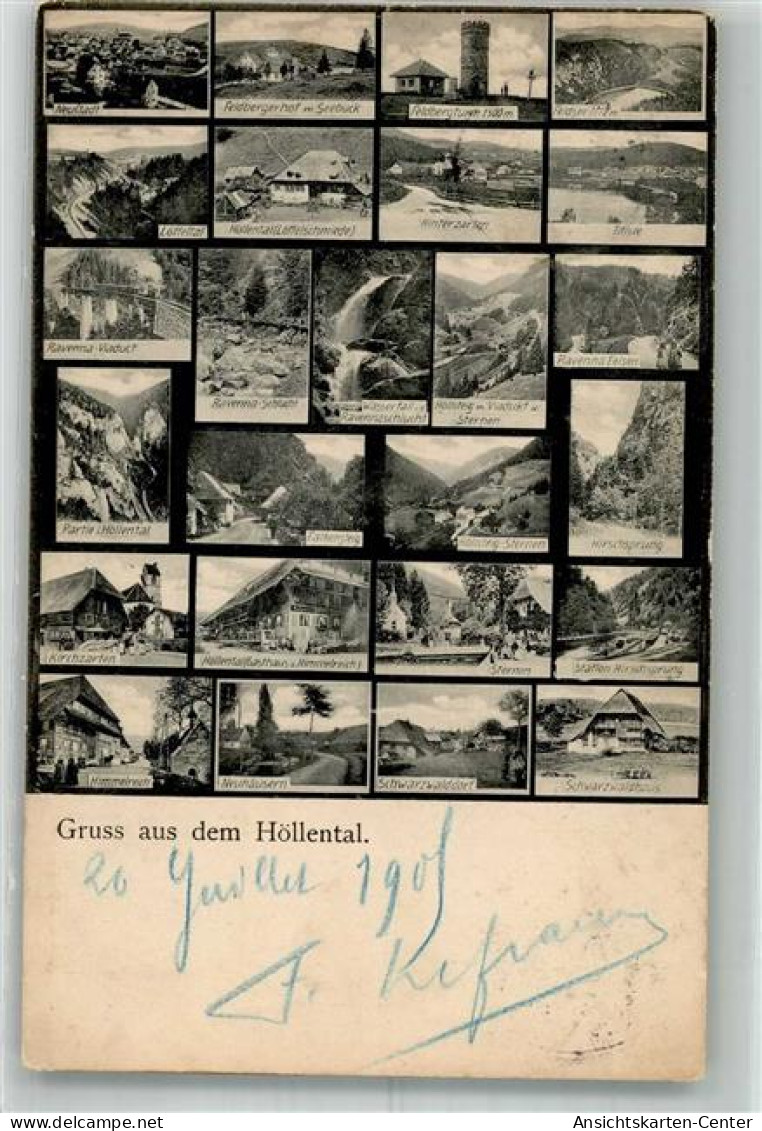 Neustadt
Feldbergerhof m Seebuck
Feldbergturm 1500 m.
Feldsee 1112 m
Löffeltal
Höllental (Löffelschmiede)
Hinterzarten
Titisee
Ravenna-Viaduct
Ravenna-Schlucht
Wasserfall i. d.
Ravennaschlucht
Höllsteig m. Viadukt u
Sternen
Ravenna Felsen
Partie i. Höllental
Falkensteig
Höllsteig-Sternen
Hirschsprung
Kirchzarten
Höllental (Gasthaus z. Himmelreich)
Sternen
Station Hirschsprung
Himmelreich
Neuhäusern
Schwarzwalddorf
Schwarzwaldhaus
Gruss aus dem Höllental.
20 Juillet 1905
oldthing
Ansichtskarten-Center